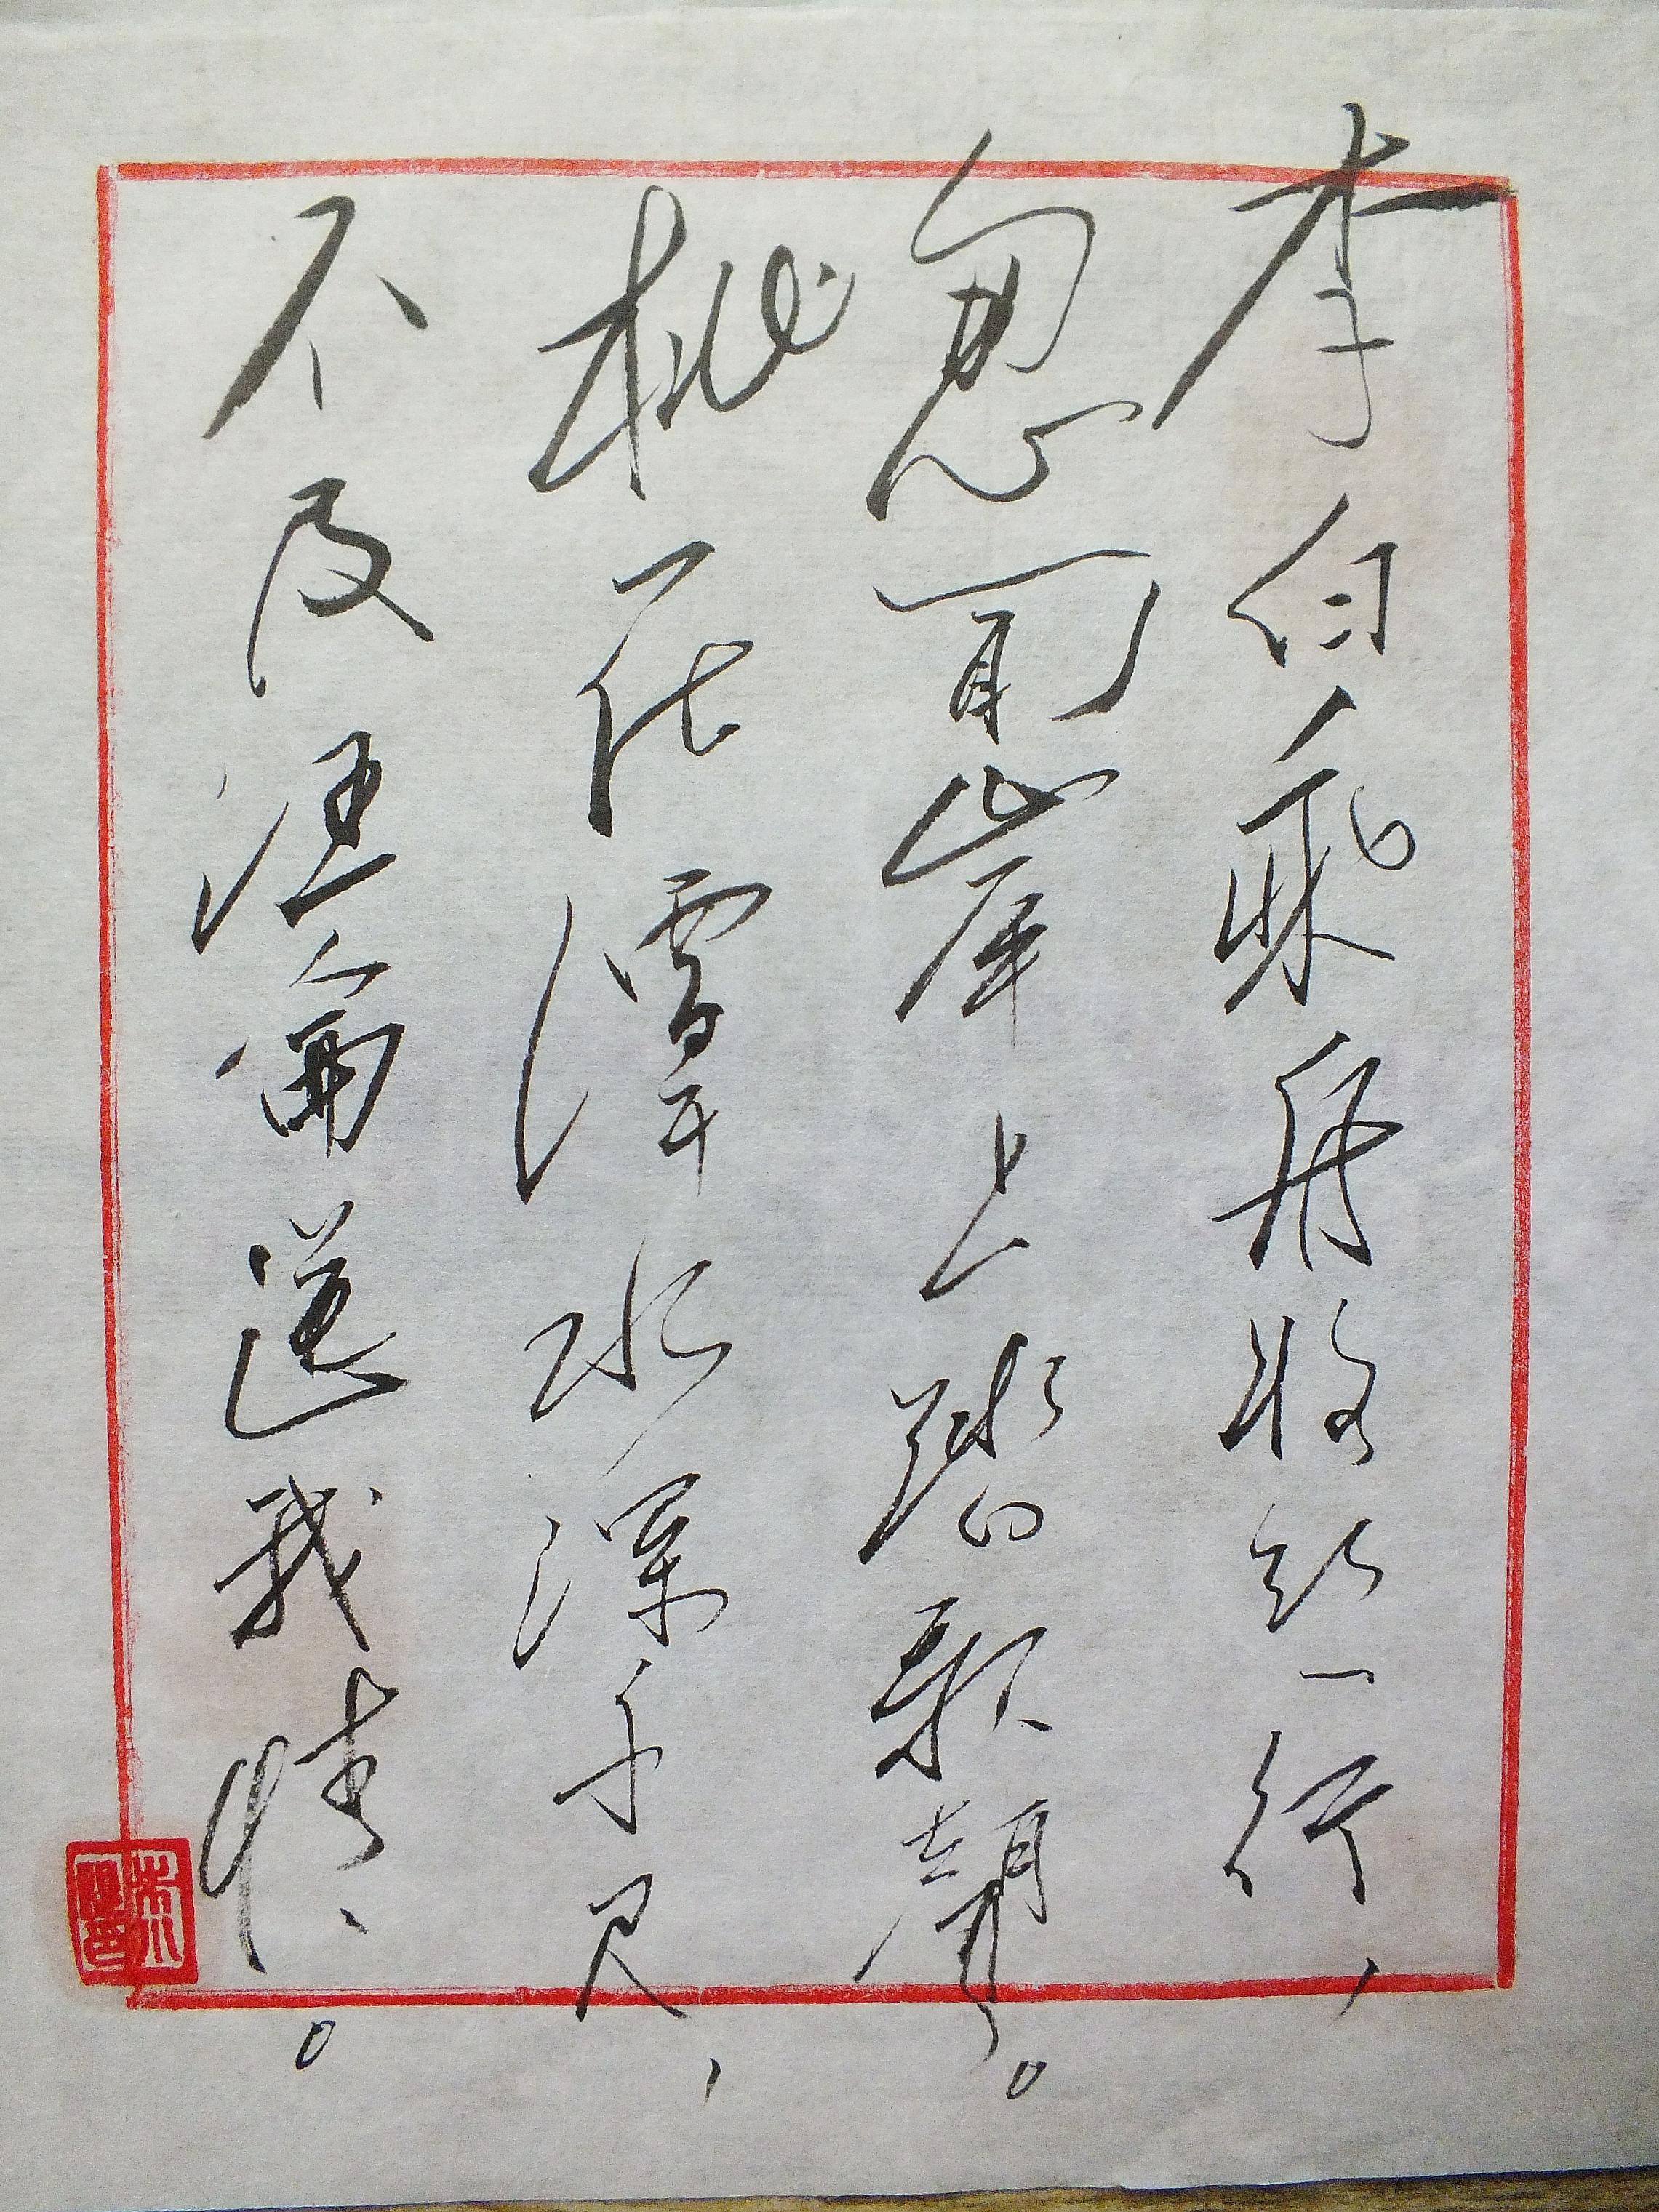 李白乘舟将欲行，
忽聞岸上踏歌聲。
桃花潭水深千尺，
不及汪倫送我情。